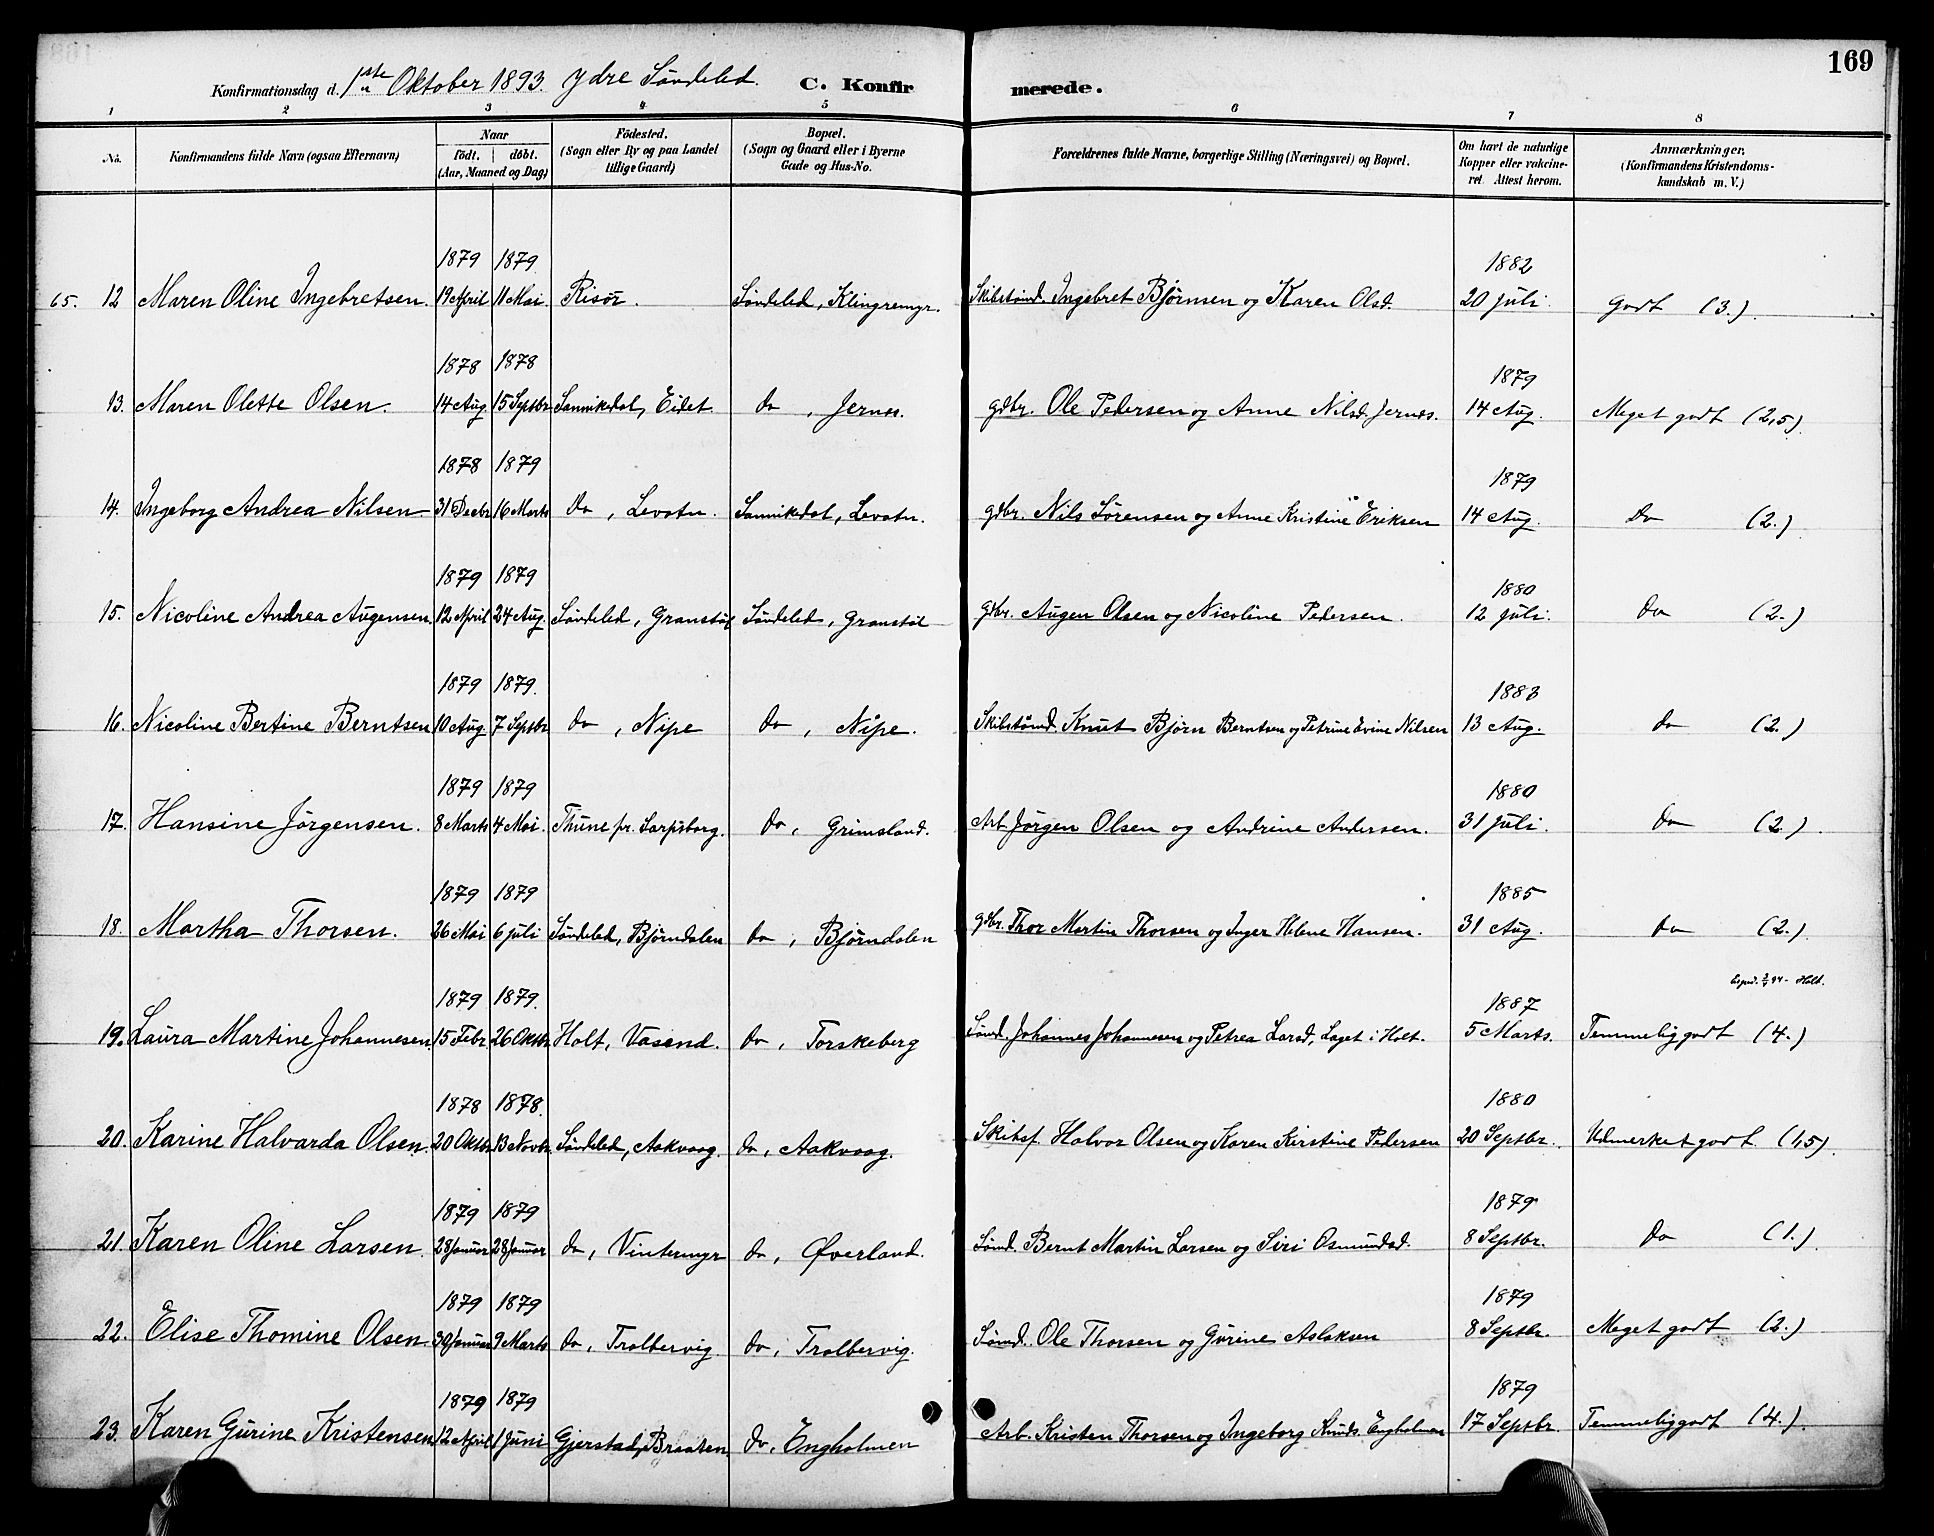 169
Konfirmationsdag d. 1ste Oktober 1893. Ydre Søndeled. C. Konfirmerede.
1 2 3 4 5 6 7 8
No. Konfirmandens fulde Navn (ogsaa Efternavn) Naar födt. döbt. (Aar, Maaned og Dag) Födested. (Sogn eller By og paa Landet tillige Gaard) Bopæl. (Sogn og Gaard eller i Byerne Gade og Hus-No. Forældrenes fulde Navne, borgerlige Stilling (Næringsvei) og Bopæl. Om havt de naturlige Kopper eller vakcineret. Attest herom. Anmærkninger, (Konfirmandens Kristendomskundskab m. V.)
1879 1879 1882
65. 12 Maren Oline Ingebretsen. 19 April 11 Mai. Risör. Søndeled, Klingremyr. Skibstømd. Ingebret Bjørnsen og Karen Olsd. 20 juli. Godt (3.)
1878 1878 1879
13. Maren Olette Olsen. 14 Aug. 15 Septbr Sannikedal, Eidet do, Jernes. gdbr. Ole Pedersen og Anne Nilsd. Jernes. 14 Aug. Meget godt (2,5)
1878 1879 1879
14. Ingeborg Andrea Nilsen. 31 Decbr 16 Marts do, Levatn. Sannikedal, Levatn. gdbr. Nils Sørensen og Anne Kristine Eriksen 14 Aug. Do (2.)
1879 1879 1880
15. Nicoline Andrea Augensen 12 April 24 Aug. Søndeled, Granstøl Søndeled, Granstøl gdbr. Augen Olsen og Nicoline Pedersen. 12 juli. Do (2.)
1879 1879. 1883
16. Nicoline Bertine Berntsen 10 Aug. 7 Septbr do, Nipe do, Nipe. Skibstømd. Knut Bjørn Berntsen og Petrine Evine Nilsen 13 Aug. do (2.)
1879 1879 1880
17. Hansine Jørgensen. 8 Marts 4 Mai. Thune pr. Sarpsborg. do, Grimsland. Arb. Jørgen Olsen og Andrine Andersen. 31 juli. Do (2.)
1879 1879 1885
18. Martha Thorsen. 26 Mai 6 juli Søndeled, Bjørndalen do, Bjørndalen gdbr. Thor Martin Thorsen og Inger Helene Hansen. 31 Aug. Do (2.)
1879 1879. 1887 Holt.
19. Laura Martine Johannesen. 15 Febr 26 Oktbr. Holt, Vasend. do, Torskeberg Sømd. Johannes Johannesen og Petrea Larsd, Laget i Holt. 5 Marts. Temmelig godt (4.)
1878 1878. 1880
20. Karine Halvarda Olsen. 20 Oktbr 13 Novbr. Søndeled, Aakvaag. do, Aakvaag. Skibsf. Halvor Olsen og Karen Kirstine Pedersen 20 Septbr. Udmerket godt. (1,5)
1879 1879 1879
21. Karen Oline Larsen. 28 Januar 28 Januar do, Vintermyr do, Øverland. Sømd. Bernt Martin Larsen og Siri Osmundsd. 8 Septbr. Do (1.)
1879 1879 1879
22. Elise Thomine Olsen. 30 Januar 9 Marts do, Trolbervig. do, Trolbervig. Sømd. Ole Thorsen og Gurine Aslaksen 8 Septbr. Meget godt (2.)
1879 1879 1879
23. Karen Gurine Kristensen 12 April 1 Juni Gjerstad, Braaten. do, Engholmen Arb. Kristen Thorsen og Ingeborg Knuds. Engholmen 17 Septbr. Temmelig godt (4.)